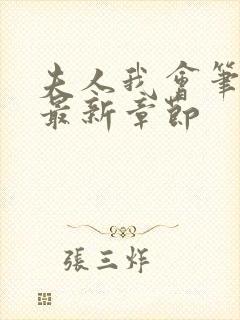 夫人我會筆
最新章節
張三炸